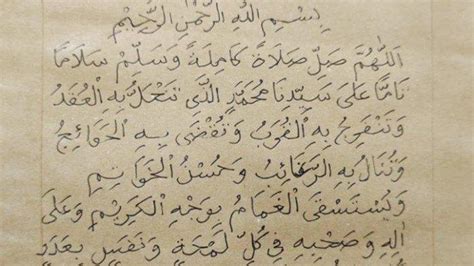 بِسْمِ اللهِ الرَّحْمٰنِ الرَّحِيْمِ
اَللّٰهُمَّ صَلِّ صَلَاةً كَامِلَةً وَسَلِّمْ سَلَامًا
تَامًّا عَلىَ سَيِّدِنَا مُحَمَّدٍ الَّذِي تَنْحَلُّ بِهِ الْعُقَدُ
وَتَنْفَرِجُ بِهِ الْقُرَبُ وَتُقْضَى بِهِ الْحَوَائِجُ
وَتُنَالُ بِهِ الرَّغَائِبُ وَحُسْنُ الْخَوَاتِمِ
وَيُسْتَسْقَى الْغَمَامُ بِوَجْهِهِ الْكَرِيْمِ وَعَلىَ
اٰلِهِ وَصَحْبِهِ فِي كُلِّ لَمْحَةٍ وَنَفَسٍ بِعَدَدِ